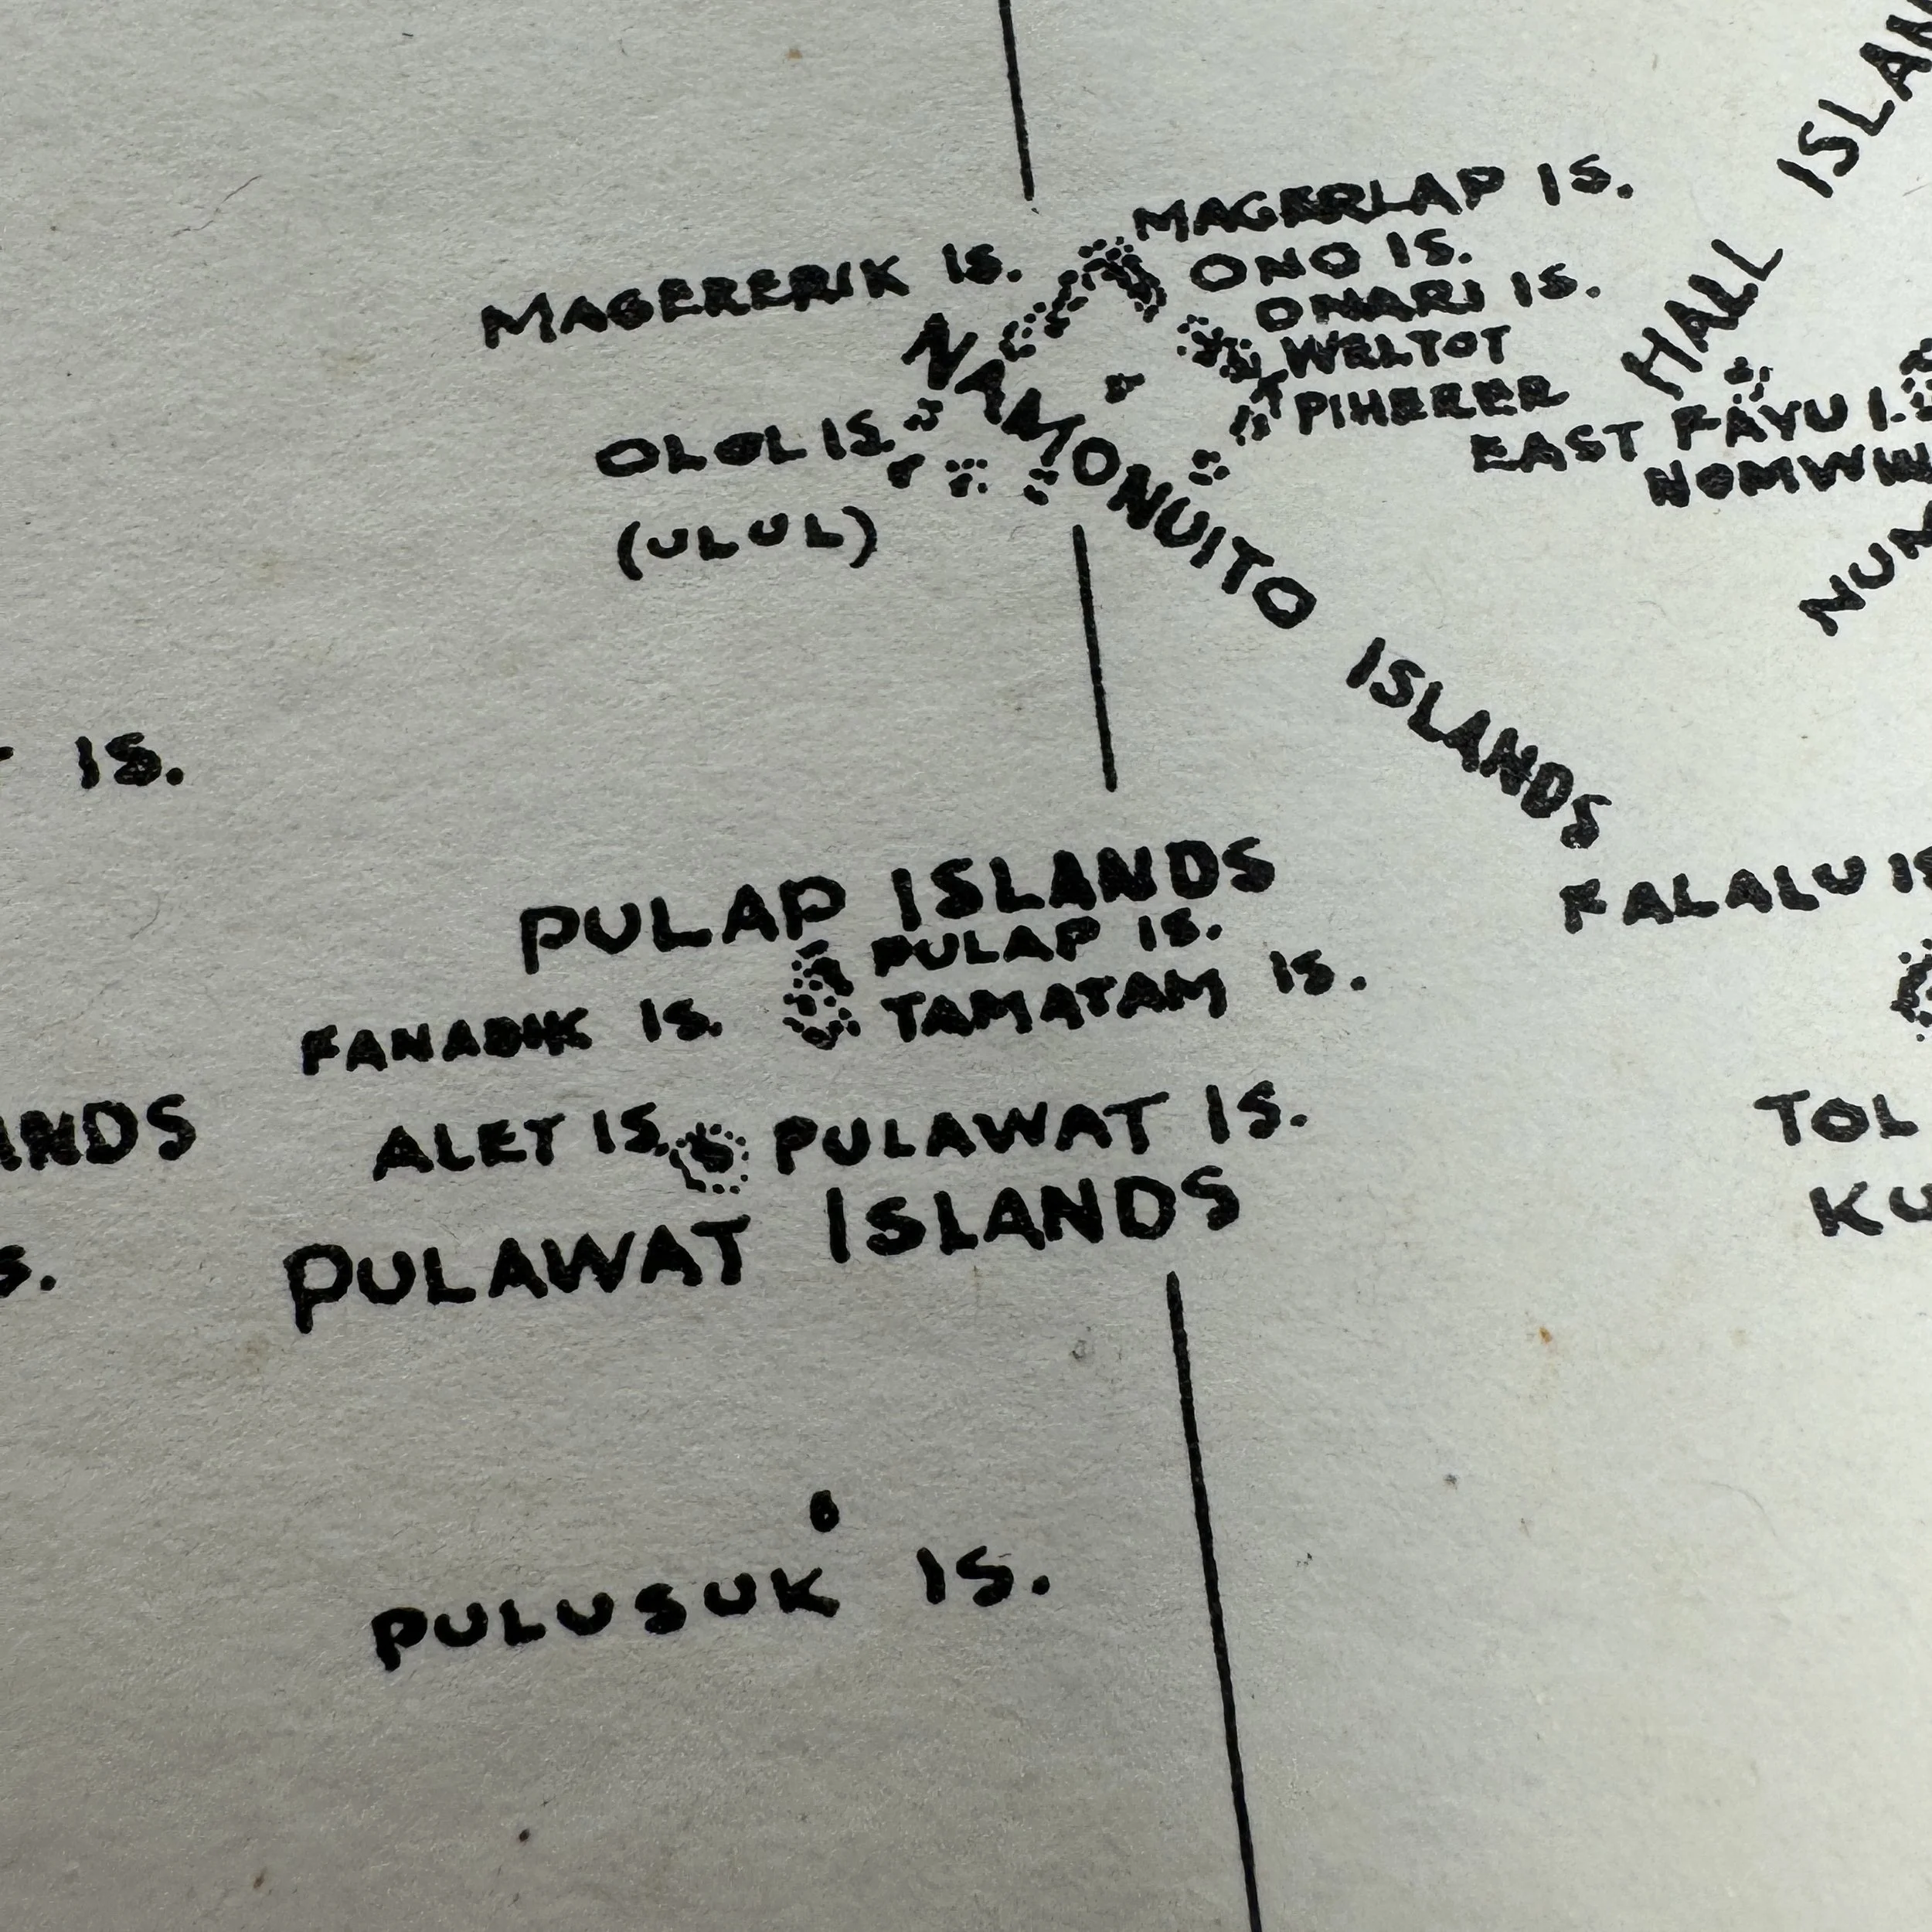 HALL ISLAN
MAGERLAP IS.
MAGERERIK IS.
ONO IS.
ONARI IS.
WELTOT
PIHERER
EAST FAYU I.
NOMWIN
NAMONUITO ISLANDS
OLOL IS.
(ULUL)
NUM
IS.
FALALU IS
PULAP ISLANDS
PULAP IS.
FANADIK IS.
TAMATAM IS.
ANDS
ALET IS.
PULAWAT IS.
TOL
PULAWAT ISLANDS
KU
S.
PULUSUK IS.